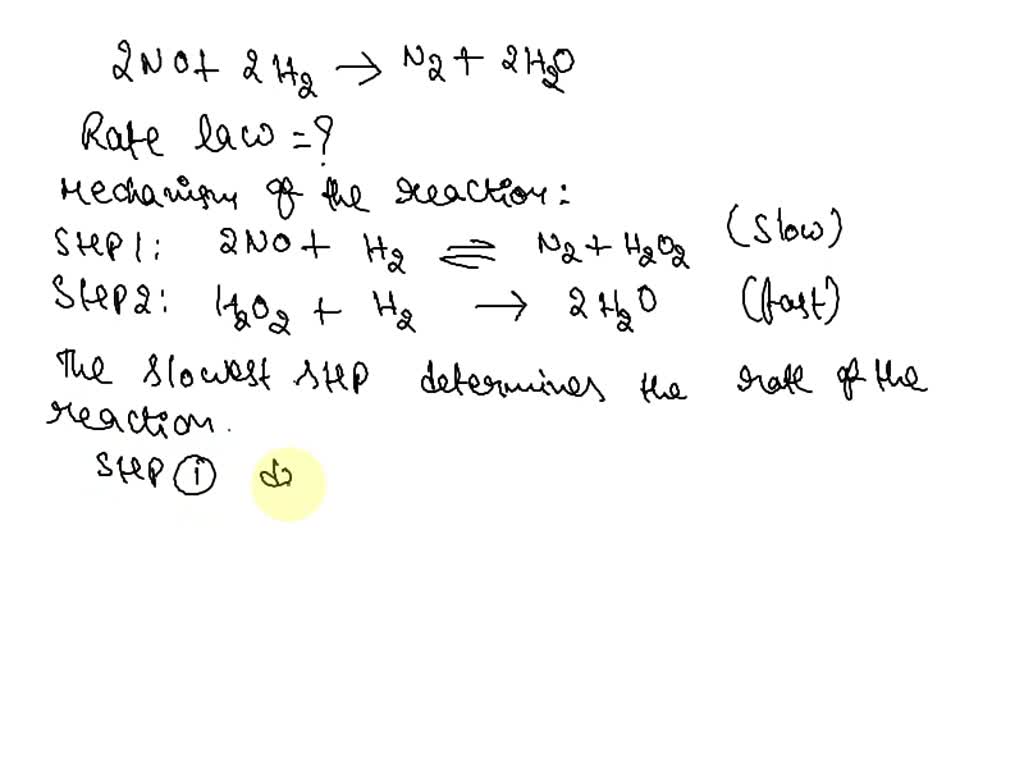 2NO + 2H₂ → N₂ + 2H₂O
Rate law = ?
Mechanism of the reaction:
STEP1: 2NO + H₂ ⇌ N₂ + H₂O₂ (Slow)
STEP2: H₂O₂ + H₂ → 2H₂O (fast)
The slowest step determines the rate of the
reaction.
STEP ①